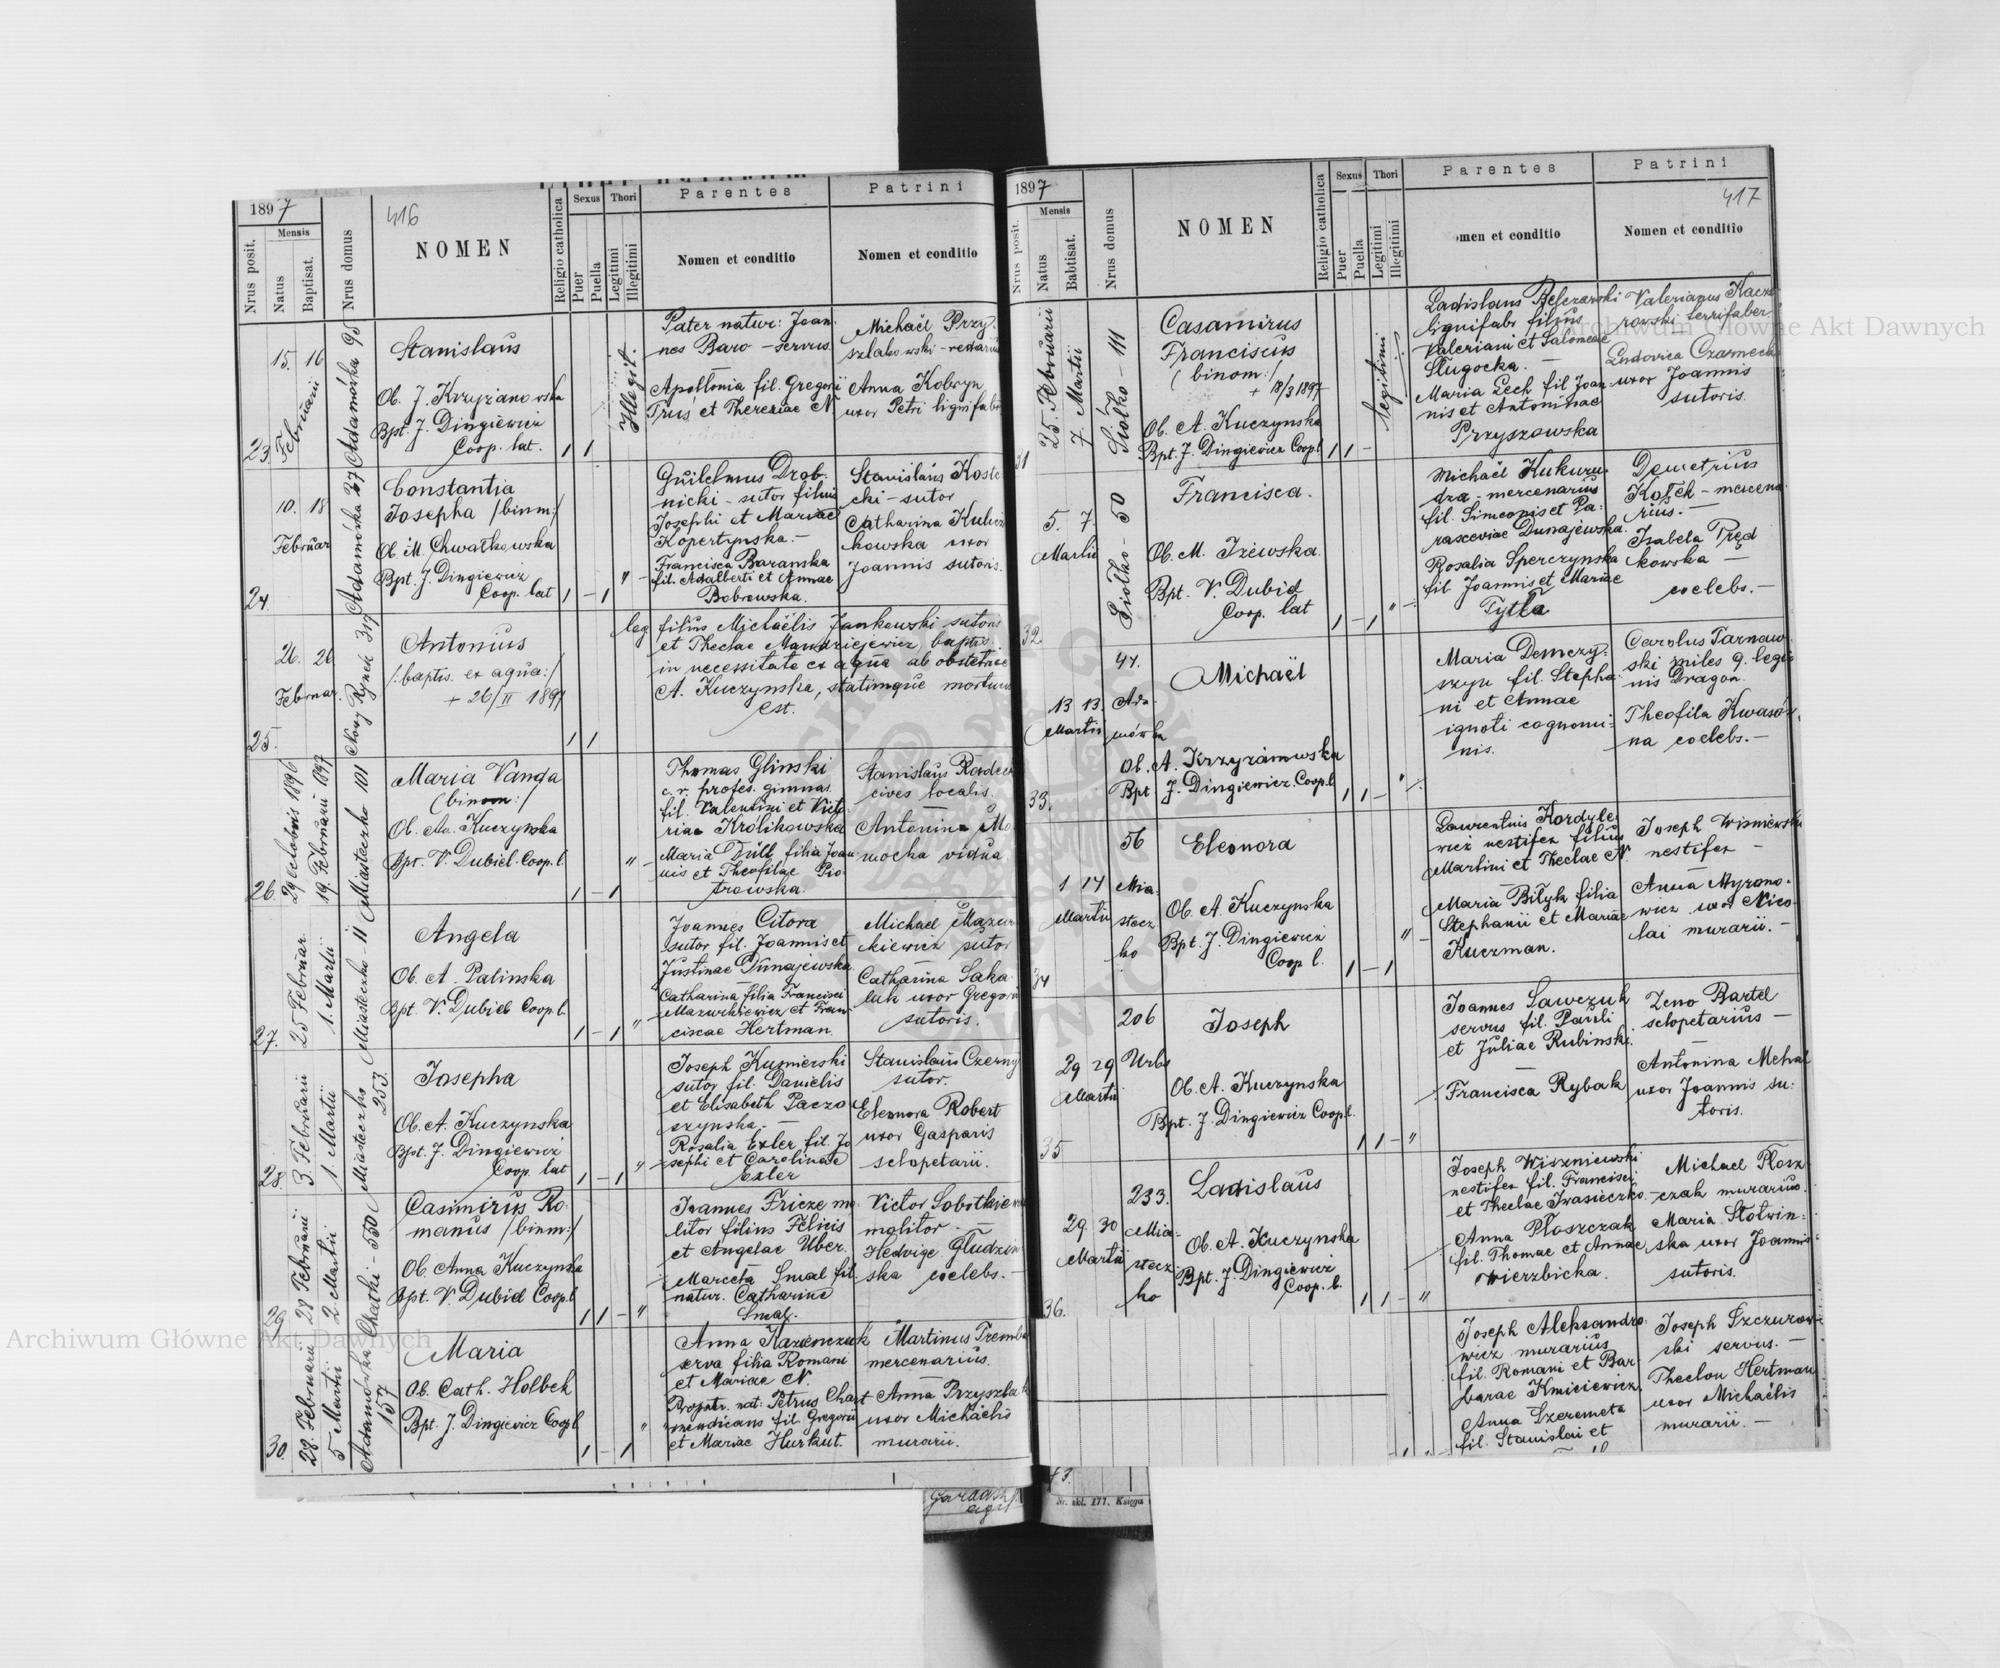 1897
416
Nrus posit.
Mensis
Natus
Baptisat.
Nrus domus
NOMEN
Religio catholica
Sexus
Puer
Puella
Thori
Legitimi
Illegitimi
Parentes
Nomen et conditio
Patrini
Nomen et conditio
23.
15. 16
Februarii
Adamówka 95
Stanislaus
Ob. J. Krzyżanowska
Bpt. J. Dingiewicz
Coop. lat.
1 1
Illegit.
Pater natur: Joan-
nes Baro - servus.
Apollonia fil. Gregorii
Truś et Thereziae N.
Michaël Przy-
szlakowski - restarius
Anna Kobryn
uxor Petri lignifabri
24.
10. 18
Februar
Adamówka 37
Constantia
Josepha /binm:/
Ob. M. Chwałkowska
Bpt. J. Dingiewicz
Coop. lat
1 - 1
"
Guilelmus Drob-
nicki - sutor filius
Josephi et Mariae
Kopertynska. -
Francisca Baranska
fil. Adalberti et Annae
Bobrowska.
Stanislaus Koste
cki - sutor
Catharina Kulcz
kowska uxor
Joannis sutoris.
25.
26. 26
Februar
Nowy Rynek 319
Antonius
/:baptis. ex aqua:/
+ 26/II 1897
1 1
leg.
filius Michaëlis Jankowski sutoris
et Theclae Mandziejewicz, baptis.
in necessitate ex aqua ab obstetrice
A. Kuczynska, statimque mortuus
est.
26.
29 octobris 1896
19 Februarii 1897
Miasteczko 101
Maria Vanda
(binom:/
Ob. An. Kuczynska
Bpt. V. Dubiel. Coop. l.
1 - 1
"
Thomas Glinski
c. r. profes. gimnas.
fil. Valentini et Victo
riae Królikowska
Maria Dill filia Joan
nis et Theofilae Pio-
trowska.
Stanislaus Radec
cives localis.
Antonina Mo
mocka vidua
27.
25 Februar.
1. Martii
Miasteczko 11
Angela
Ob. A. Palinska
Bpt. V. Dubiel Coop l.
1 - 1
"
Joannes Citora
sutor fil. Joannis et
Justinae Dunajewska
Catharina filia Francisci
Mazurkiewicz et Fran-
ciscae Hertman.
Michael Mazur
kiewicz sutor
Catharina Saka
luk uxor Gregorii
sutoris.
28.
3. Februarii
1 Martii
Miasteczko 253
Josepha
Ob. A. Kuczynska
Bpt. J. Dingiewicz
Coop. lat
1 - 1
"
Joseph Kuzmierski
sutor fil. Danielis
et Elisabeth Paczo
szynska. -
Rosalia Exler fil. Jo
sephi et Carolinae
Exler
Stanislaus Czerny
sutor.
Eleonora Robert
uxor Gasparis
sclopetarii.
29
28 Februarii
2 Martii
Chatki - 550
Casimirus Ro-
manus /binm:/
Ob. Anna Kuczynska
Bpt. V. Dubiel Coop. l
1 1 -
"
Joannes Fricze mo
litor filius Felicis
et Angelae Uber.
Marcela Smal fil.
natur. Catharine
Smal.
Victor Sobotkiewicz
molitor -
Hedvige Gludzin
ska coelebs. -
30.
28. Februarii
5 Martii
Adamówka 157
Maria
Ob. Cath. Holbek
Bpt. J. Dingiewicz Coop l
1 - 1
"
Anna Kazienczuk
serva filia Romani
et Mariae N.
Propatr. nat: Petrus Chart
mendicans fil. Gregorii
et Mariae Hurkut.
Martinus Tremba
mercenarius.
Anna Przyszlak
uxor Michaëlis
murarii.
1897
417
Nrus posit.
Mensis
Natus
Babtisat.
Nrus domus
NOMEN
Religio catholica
Sexus
Puer
Puella
Thori
Legitimi
Illegitimi
Parentes
omen et conditio
Patrini
Nomen et conditio
31
25. Februarii
7. Martii
Siolko - 111
Casamirus
Franciscus
(binom:/
+ 18/3 1897
Ob. A. Kuczynska
Bpt. J. Dingiewicz Coop l
1 1 -
legitimi
Ladislaus Belczarski
lignifabr filius
Valeriani et Salomeae
Sługocka. -
Maria Lech fil Joan-
nis et Antoninae
Przyszowska
Valerianus Kaczo
rowski ferrifaber
Ludovica Czarnecka
uxor Joannis
sutoris.
32.
5. 7.
Martii
Siołko - 50
Francisca.
Ob. M. Iżewska.
Bpt. V. Dubiel
Coop. lat
1 - 1
"
Michaël Kukuru-
dza - mercenarius
fil. Simeonis et Pa-
rasceviae Dunajewska.
Rosalia Sperczynska
fil Joannis et Mariae
Tytła
Demetrius
Kołek - mercena
rius. -
Izabela Pręd
kowska -
coelebs. -
33.
13 13.
Martii
47.
Ada-
mówka
Michaël
Ob. A. Krzyżanowska
Bpt J. Dingiewicz. Coop. l
1 1 -
"
Maria Demczy-
szyn fil. Stepha-
ni et Annae
ignoti cognomi-
nis.
Carolus Tarnaw
ski miles 9. legio
nis Dragon.
Theofila Kwaśn
na coelebs. -
34
1 14
Martii
56
Mia-
stecz
ko
Eleonora
Ob. A. Kuczynska
Bpt. J. Dingiewicz
Coop l.
1 - 1
"
Laurentius Kordyle
wicz restifex filius
Martini et Theclae N.
Maria Bilyk filia
Stephanii et Mariae
Kuczman.
Joseph Wisniewski
restifex -
Anna Myrono-
wicz uxor Nico
lai murarii. -
35
29 29
Martii
206
Urbs
Joseph
Ob. A. Kuczynska
Bpt. J. Dingiewicz Coop l.
1 1 -
"
Joannes Sawczuk
servus fil. Pauli
et Juliae Rubinski.
Francisca Rybak
Zeno Bartel
sclopetarius -
Antonina Mehal
uxor Joannis su-
toris.
36.
29. 30
Martii
233.
Mia-
stecz
ko
Ladislaus
Ob. A. Kuczynska
Bpt. J. Dingiewicz
Coop. l.
1 1 -
"
Joseph Wiszniewski
restifex fil. Francisci
et Theclae Iwasieczko.
Anna Płoszczak
fil. Thomae et Annae
Wierzbicka.
Michael Płosz
czak murarius.
Maria Słotwin-
ska uxor Joannis
sutoris.
Joseph Aleksandro-
wicz murarius
fil. Romani et Bar-
barae Kmiciewicz,
Anna Szeremeta
fil. Stanislai et
Joseph Szczurow-
ski servus. -
Theclae Hertman
uxor Michaëlis
murarii. -
Nr. akt. 177. Księga
Archiwum Główne Akt Dawnych
Archiwum Główne Akt Dawnych